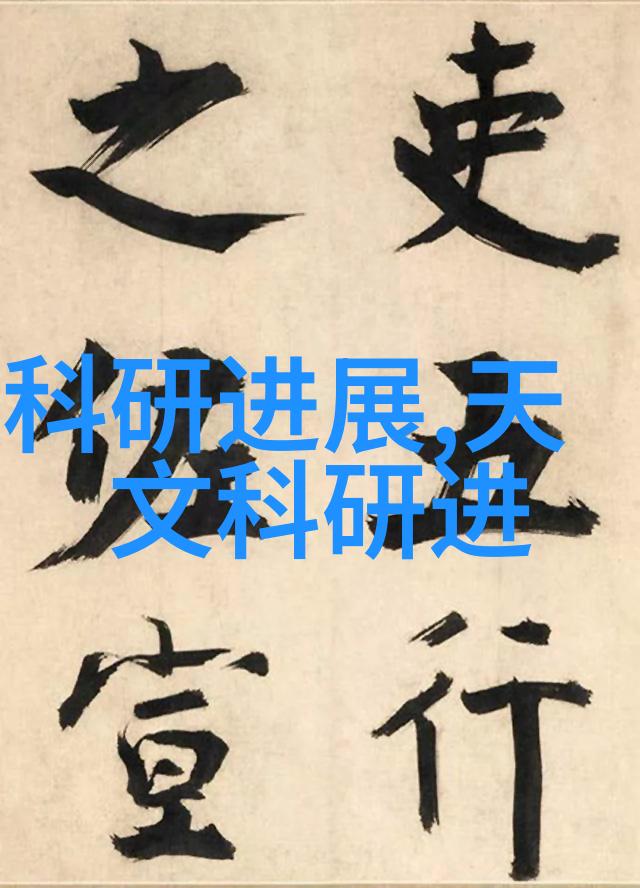 科研进展,天
文科研进
吏五行
之宣